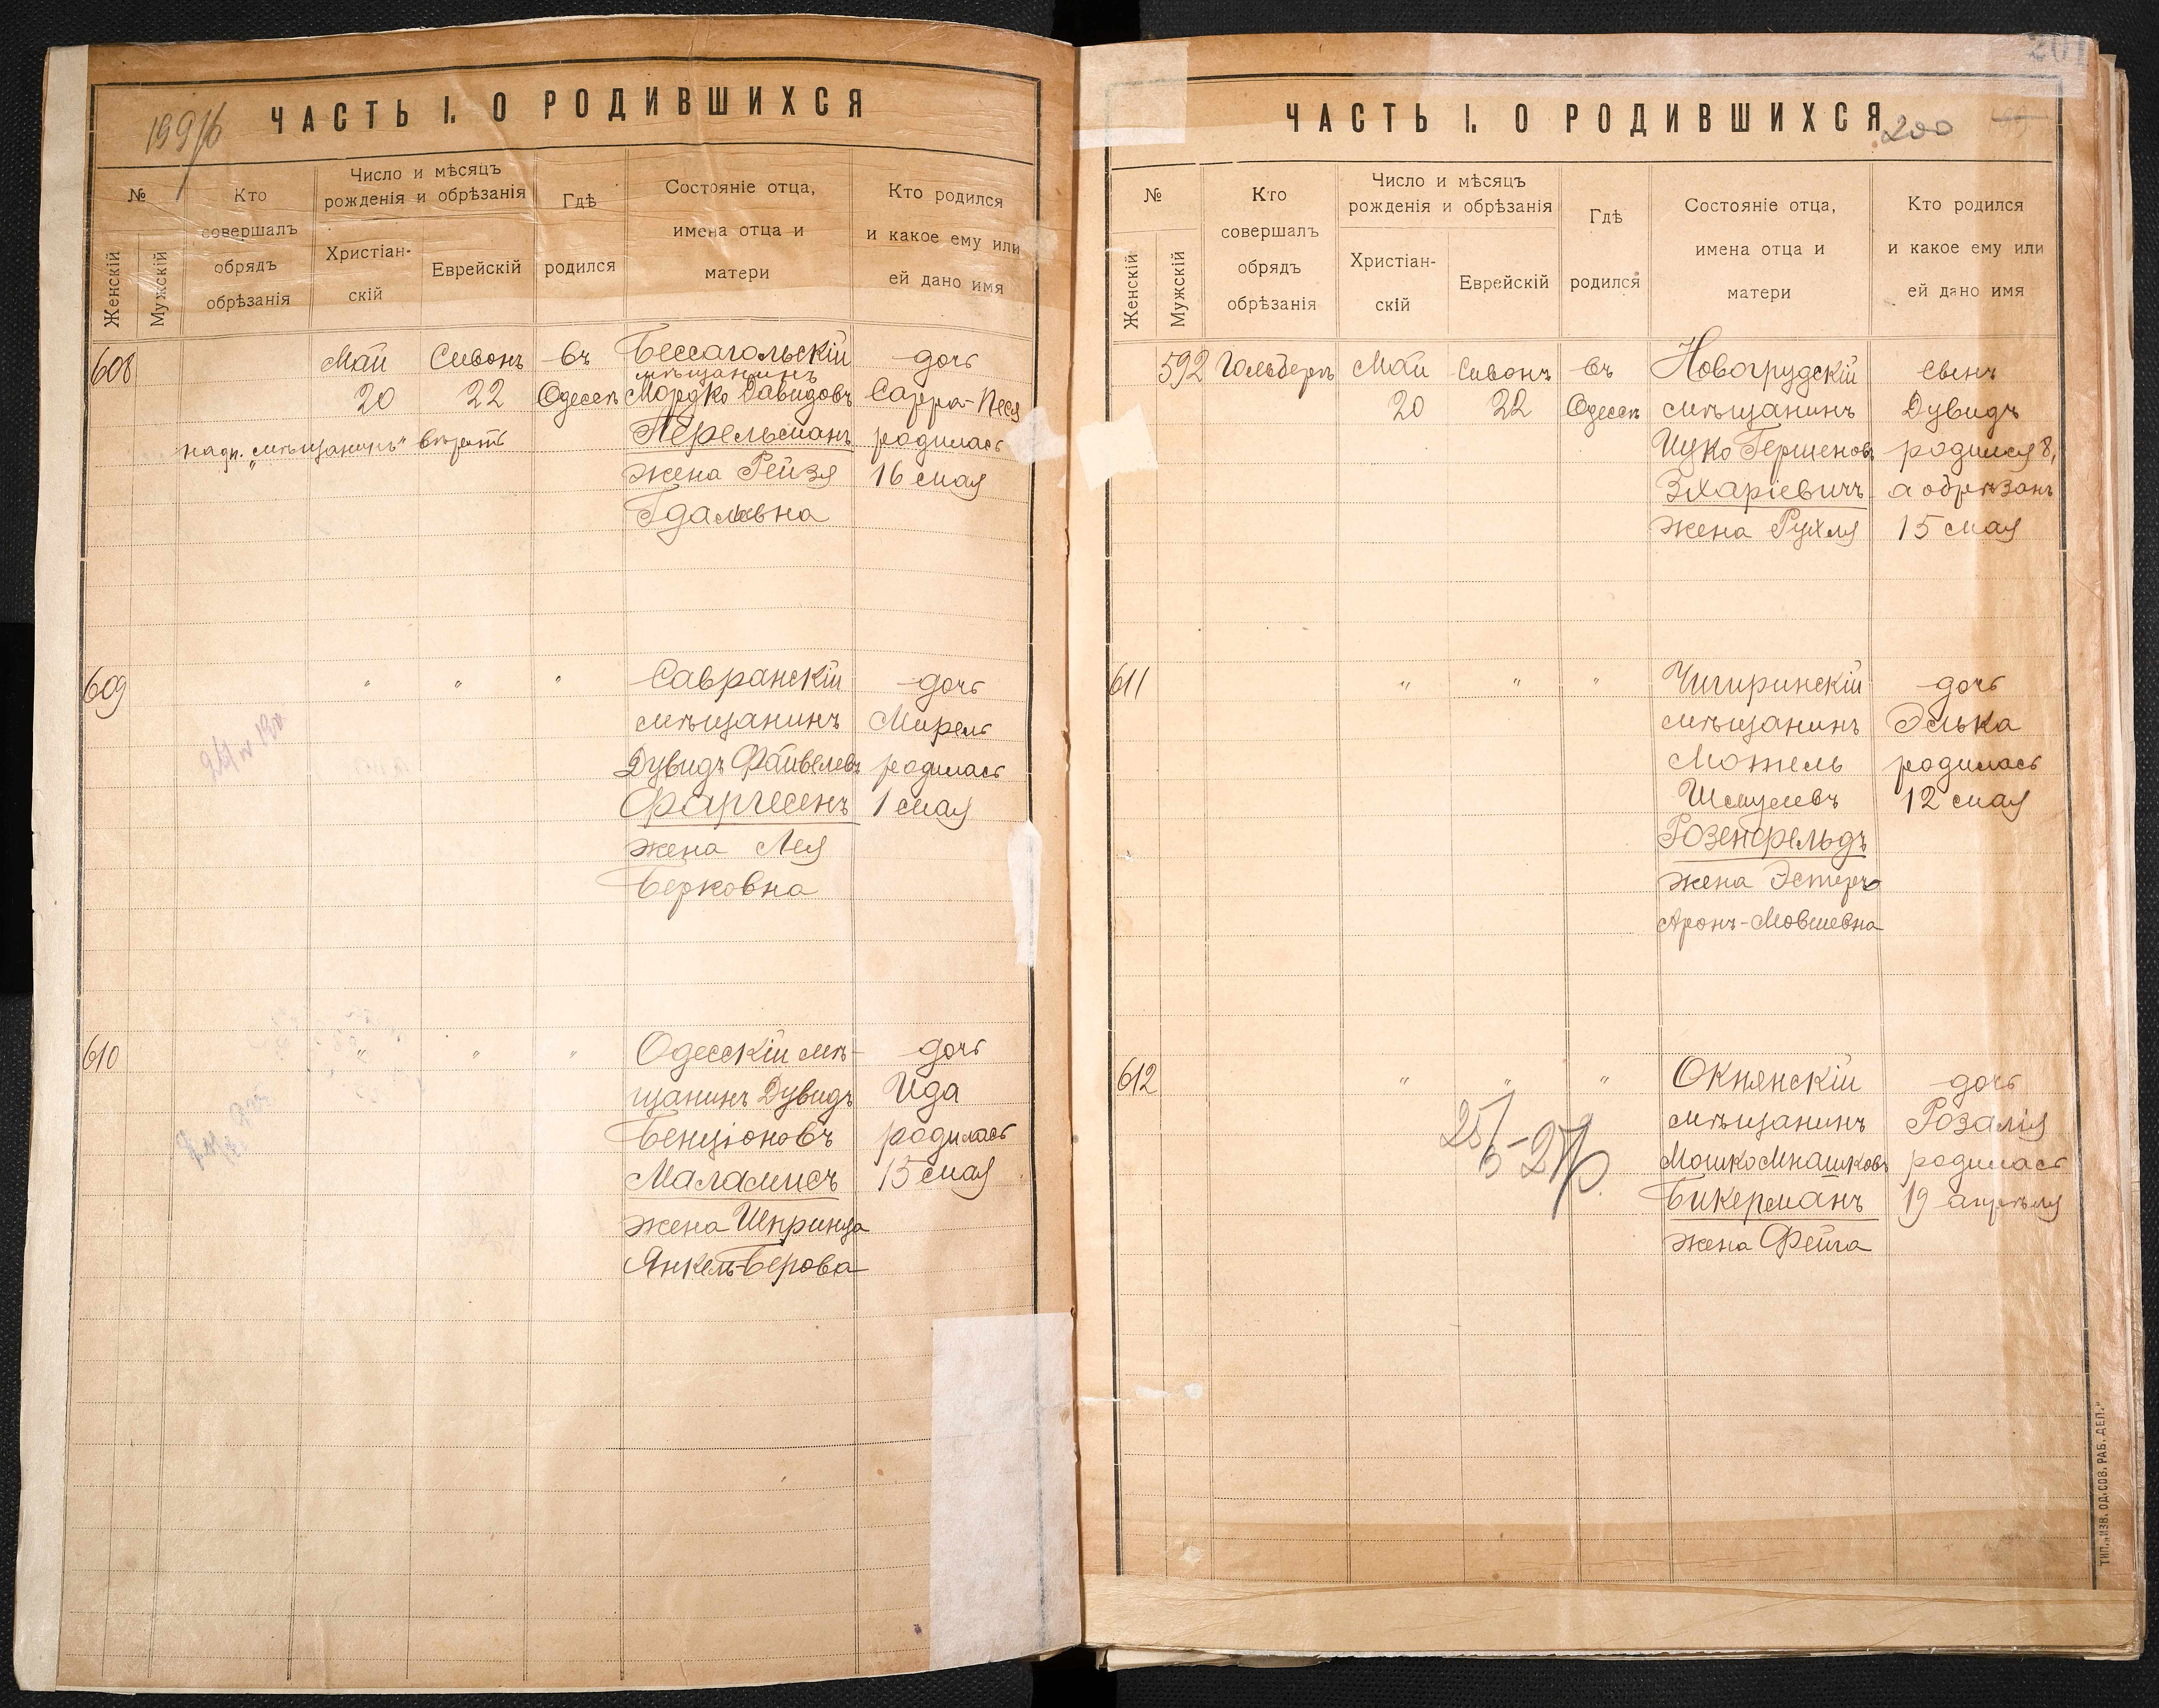 199/б
ЧАСТЬ I. О РОДИВШИХСЯ
№
Женскій
Мужскій
Кто
совершалъ
обрядъ
обрѣзанія
Число и мѣсяцъ
рожденія и обрѣзанія
Христіан-
скій
Еврейскій
Гдѣ
родился
Состояніе отца,
имена отца и
матери
Кто родился
и какое ему или
ей дано имя
608
Май
20
Сивонъ
22
въ
Одессѣ
надп. „мѣщанинъ" вѣрить
Бессагольскій
мѣщанинъ
Мордко Давидовъ
Перельманъ
жена Рейзя
Гдалевна
дочь
Сарра-Песя
родилась
16 мая
609
" " "
Савранскій
мѣщанинъ
Дувидъ Файвелевъ
Фаргесенъ
жена Лея
Берковна
дочь
Мирель
родилась
1 мая
610
" " "
Одесскій мѣ-
щанинъ Дувидъ
Бенціоновъ
Маламисъ
жена Шпринца
Янкель-Берова
дочь
Ида
родилась
15 мая
201
ЧАСТЬ I. О РОДИВШИХСЯ
200
№
Женскій
Мужскій
Кто
совершалъ
обрядъ
обрѣзанія
Число и мѣсяцъ
рожденія и обрѣзанія
Христіан-
скій
Еврейскій
Гдѣ
родился
Состояніе отца,
имена отца и
матери
Кто родился
и какое ему или
ей дано имя
592
Гольберъ
Май
20
Сивонъ
22
въ
Одессѣ
Новогрудскій
мѣщанинъ
Ицко Гершеновъ
Зхаріевичъ
жена Рухля
сынъ
Дувидъ
родился 8,
а обрѣзанъ
15 мая
611
" " "
Чигиринскій
мѣщанинъ
Мотель
Шмулевъ
Розенфельдъ
жена Эстеръ
Аронъ-Мовшевна
дочь
Элька
родилась
12 мая
612
" " "
Окнянскій
мѣщанинъ
Мошко Мнашковъ
Бикерманъ
жена Фейга
дочь
Розалія
родилась
19 апрѣля
ТИП. „ИЗВ. ОД. СОВ. РАБ. ДЕП."